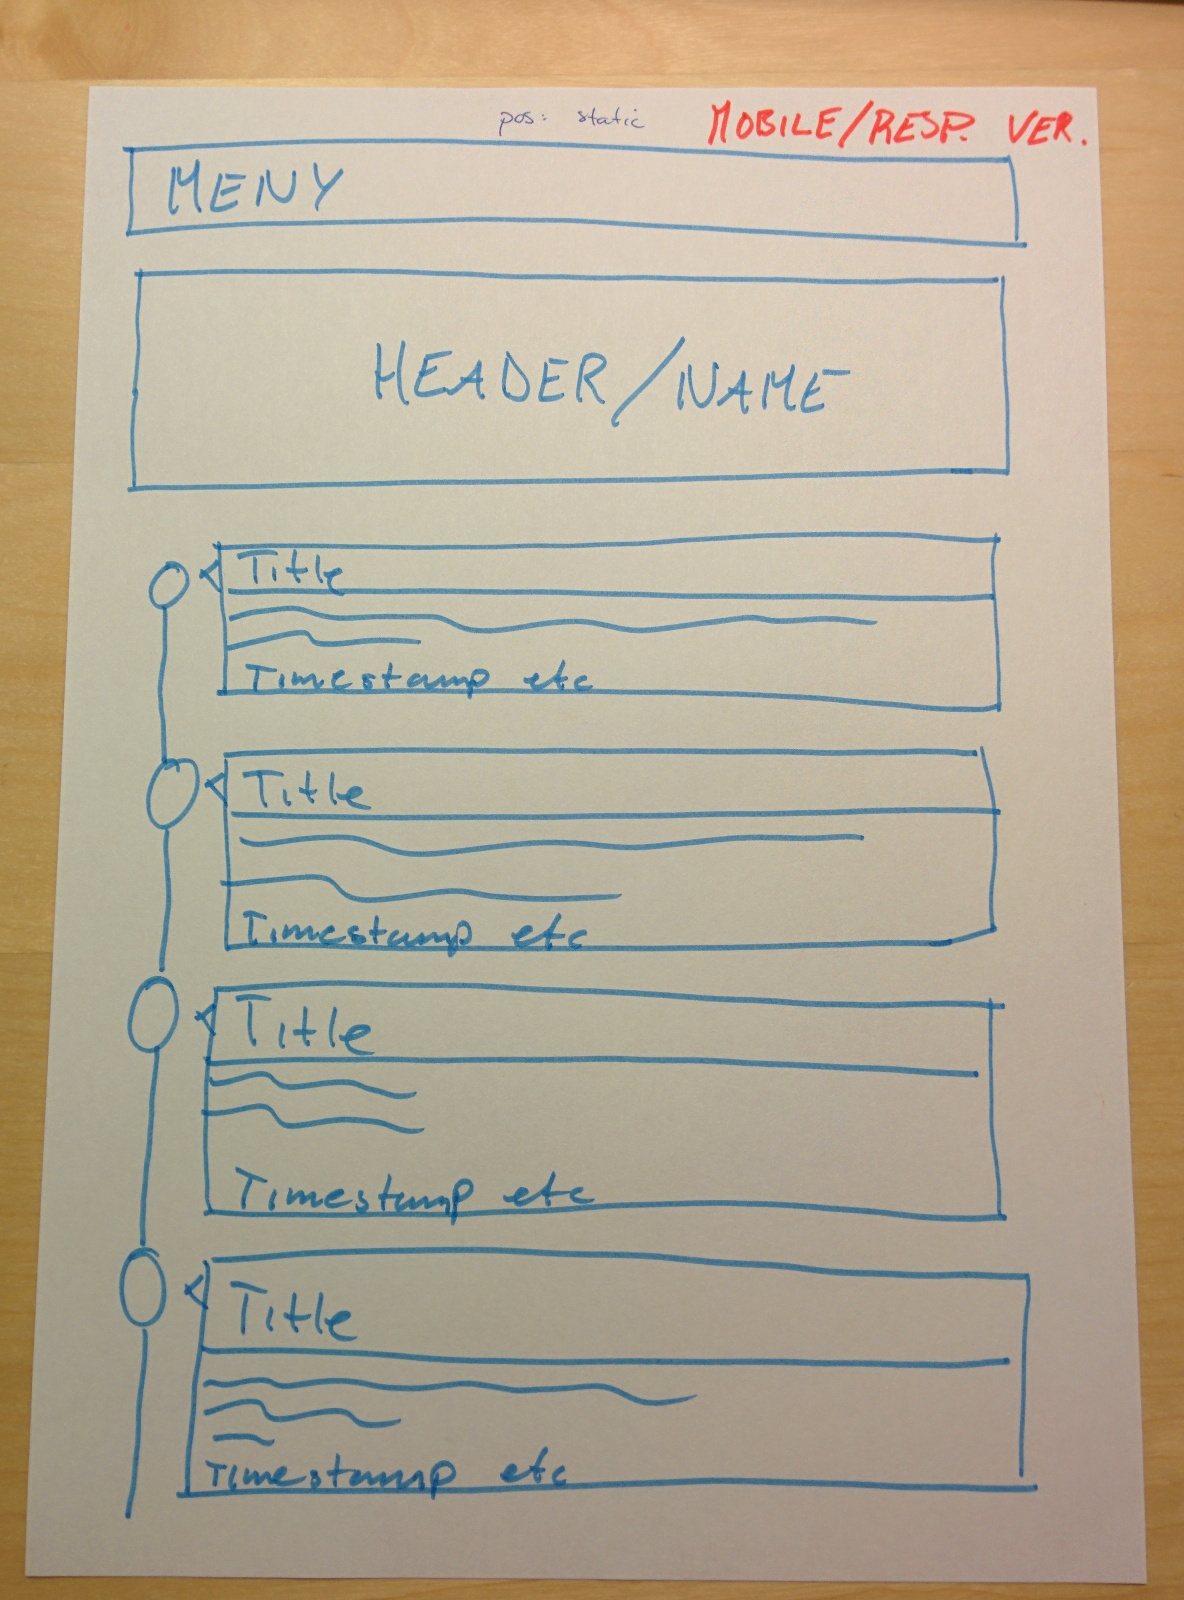 pos: static
MOBILE/RESP. VER.
MENY
HEADER/NAME
Title
Timestamp etc
Title
Timestamp etc
Title
Timestamp etc
Title
Timestamp etc